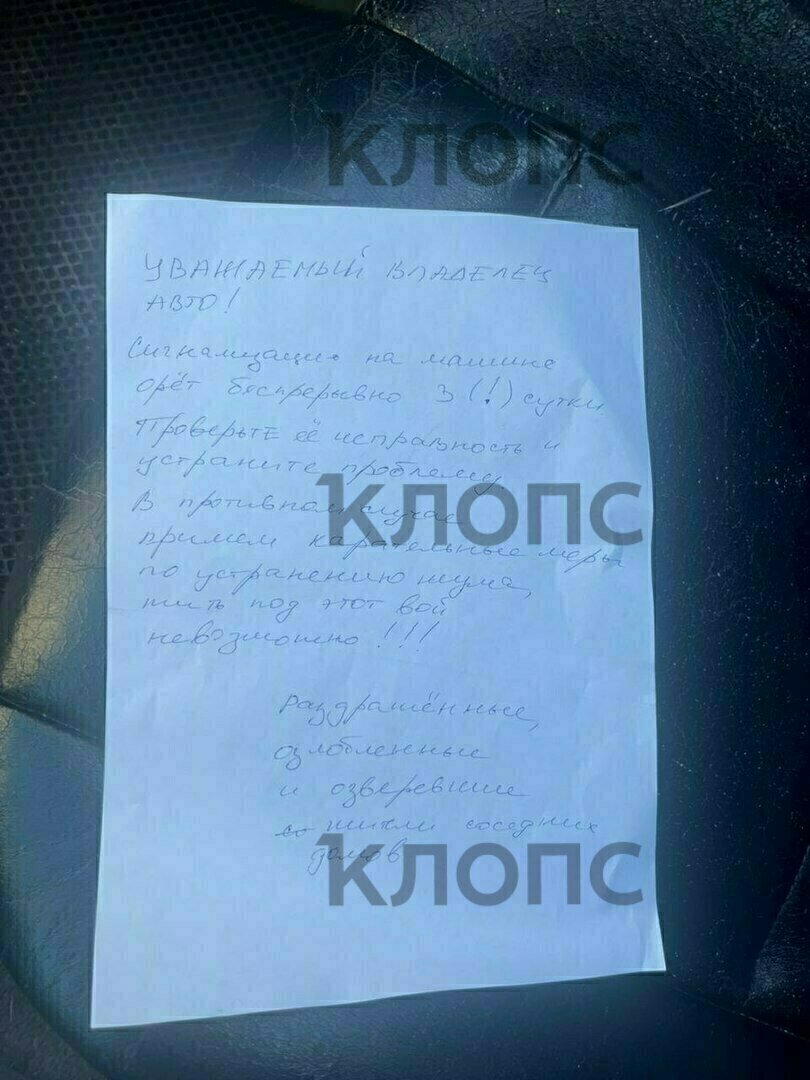 КЛОПС
УВАЖАЕМЫЙ ВЛАДЕЛЕЦ
АВТО!
Сигнализация на машине
орёт беспрерывно 3 (!) сутки
Проверьте её исправность и
устраните проблему
КЛОПС
В противном случае
примем карательные меры
по устранению шума,
жить под этот вой
невозможно!!!
Раздражённые,
озлобленные
и озверевшие
жители соседних
домов
КЛОПС